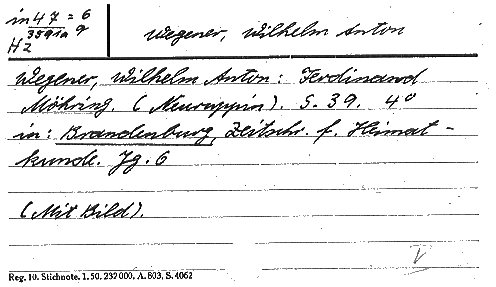 in 47 = 6
3591a 9
Hz
Wegener, Wilhelm Anton
Wegener, Wilhelm Anton: Ferdinand
Möhring. (Neuruppin). S. 39. 4°
in: Brandenburg, Zeitschr. f. Heimat-
kunde. Jg. 6
(Mit Bild).
V
Reg. 10. Stichnote. 1. 50. 232 000. A. 803, S. 4062